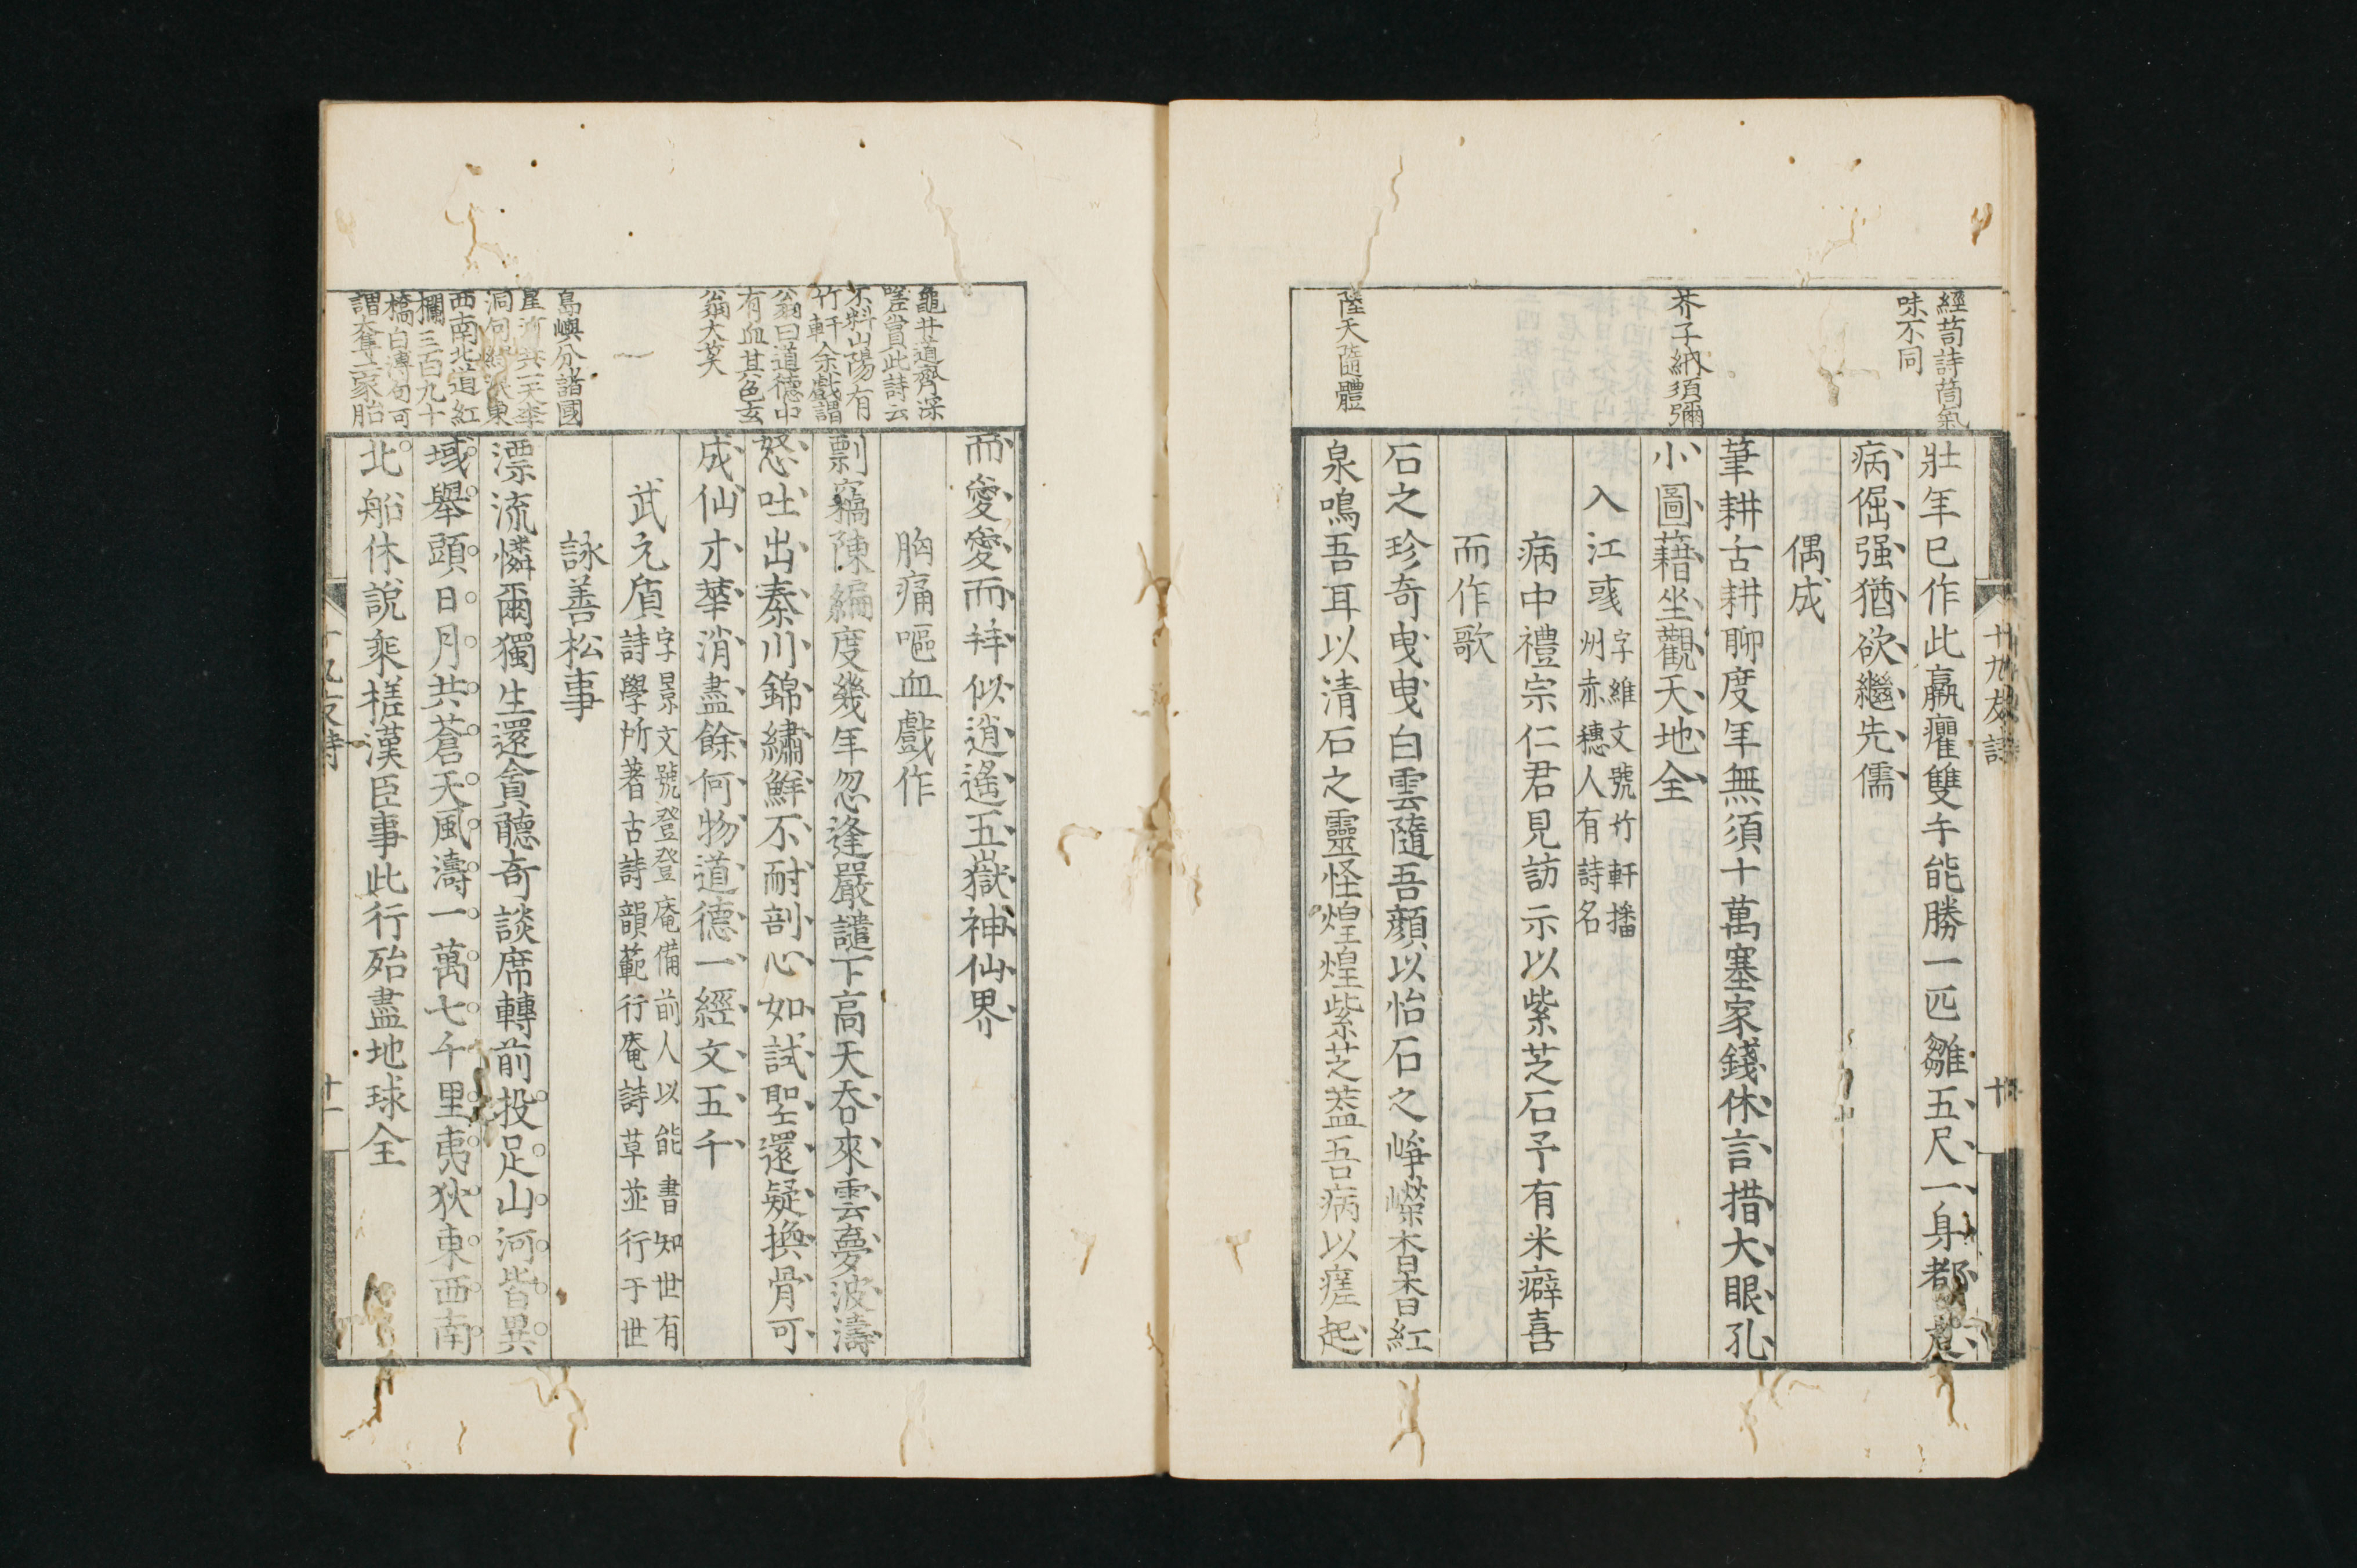 經苛詩苛氣
味不同
芥子納須彌
陸天隨體
壯年已作此羸癯雙手能勝一匹雛五尺一身都是
病倔强猶欲繼先儒
偶成
筆耕古耕聊度年無須十萬塞家錢休言措大眼孔
小圖藉坐觀天地全
入江彧字維文號竹軒播
州赤穗人有詩名
病中禮宗仁君見訪示以紫芝石予有米癖喜
而作歌
石之珍奇曳曳白雲隨吾顏以怡石之崢嶸杳杳紅
泉鳴吾耳以清石之靈怪煌煌紫芝蓋吾病以瘥起
龜井道齊深
嗟賞此詩云
不料山陽有
竹軒余戲謂
翁曰道德中
有血其色玄
翁大笑
島嶼分諸國
星河共一天李
洞句
西南北道紅
欄三百九十
橋白傅句可
謂奪二家胎
而愛愛而拜似逍遙五嶽神仙界
胸痛嘔血戲作
剽竊陳編度幾年忽逢嚴譴下高天吞來雲夢波濤
怒吐出秦川錦繡鮮不耐剖心如試聖還疑換骨可
成仙才華消盡餘何物道德一經文五千
武元質字景文號登登庵備前人以能書知世有
詩學所著古詩韻範行庵詩草並行于世
詠善松事
漂流憐爾獨生還貪聽奇談席轉前投足山河皆異
域舉頭日月共蒼天風濤一萬七千里夷狄東西南
北船休說乘槎漢臣事此行殆盡地球全
十一